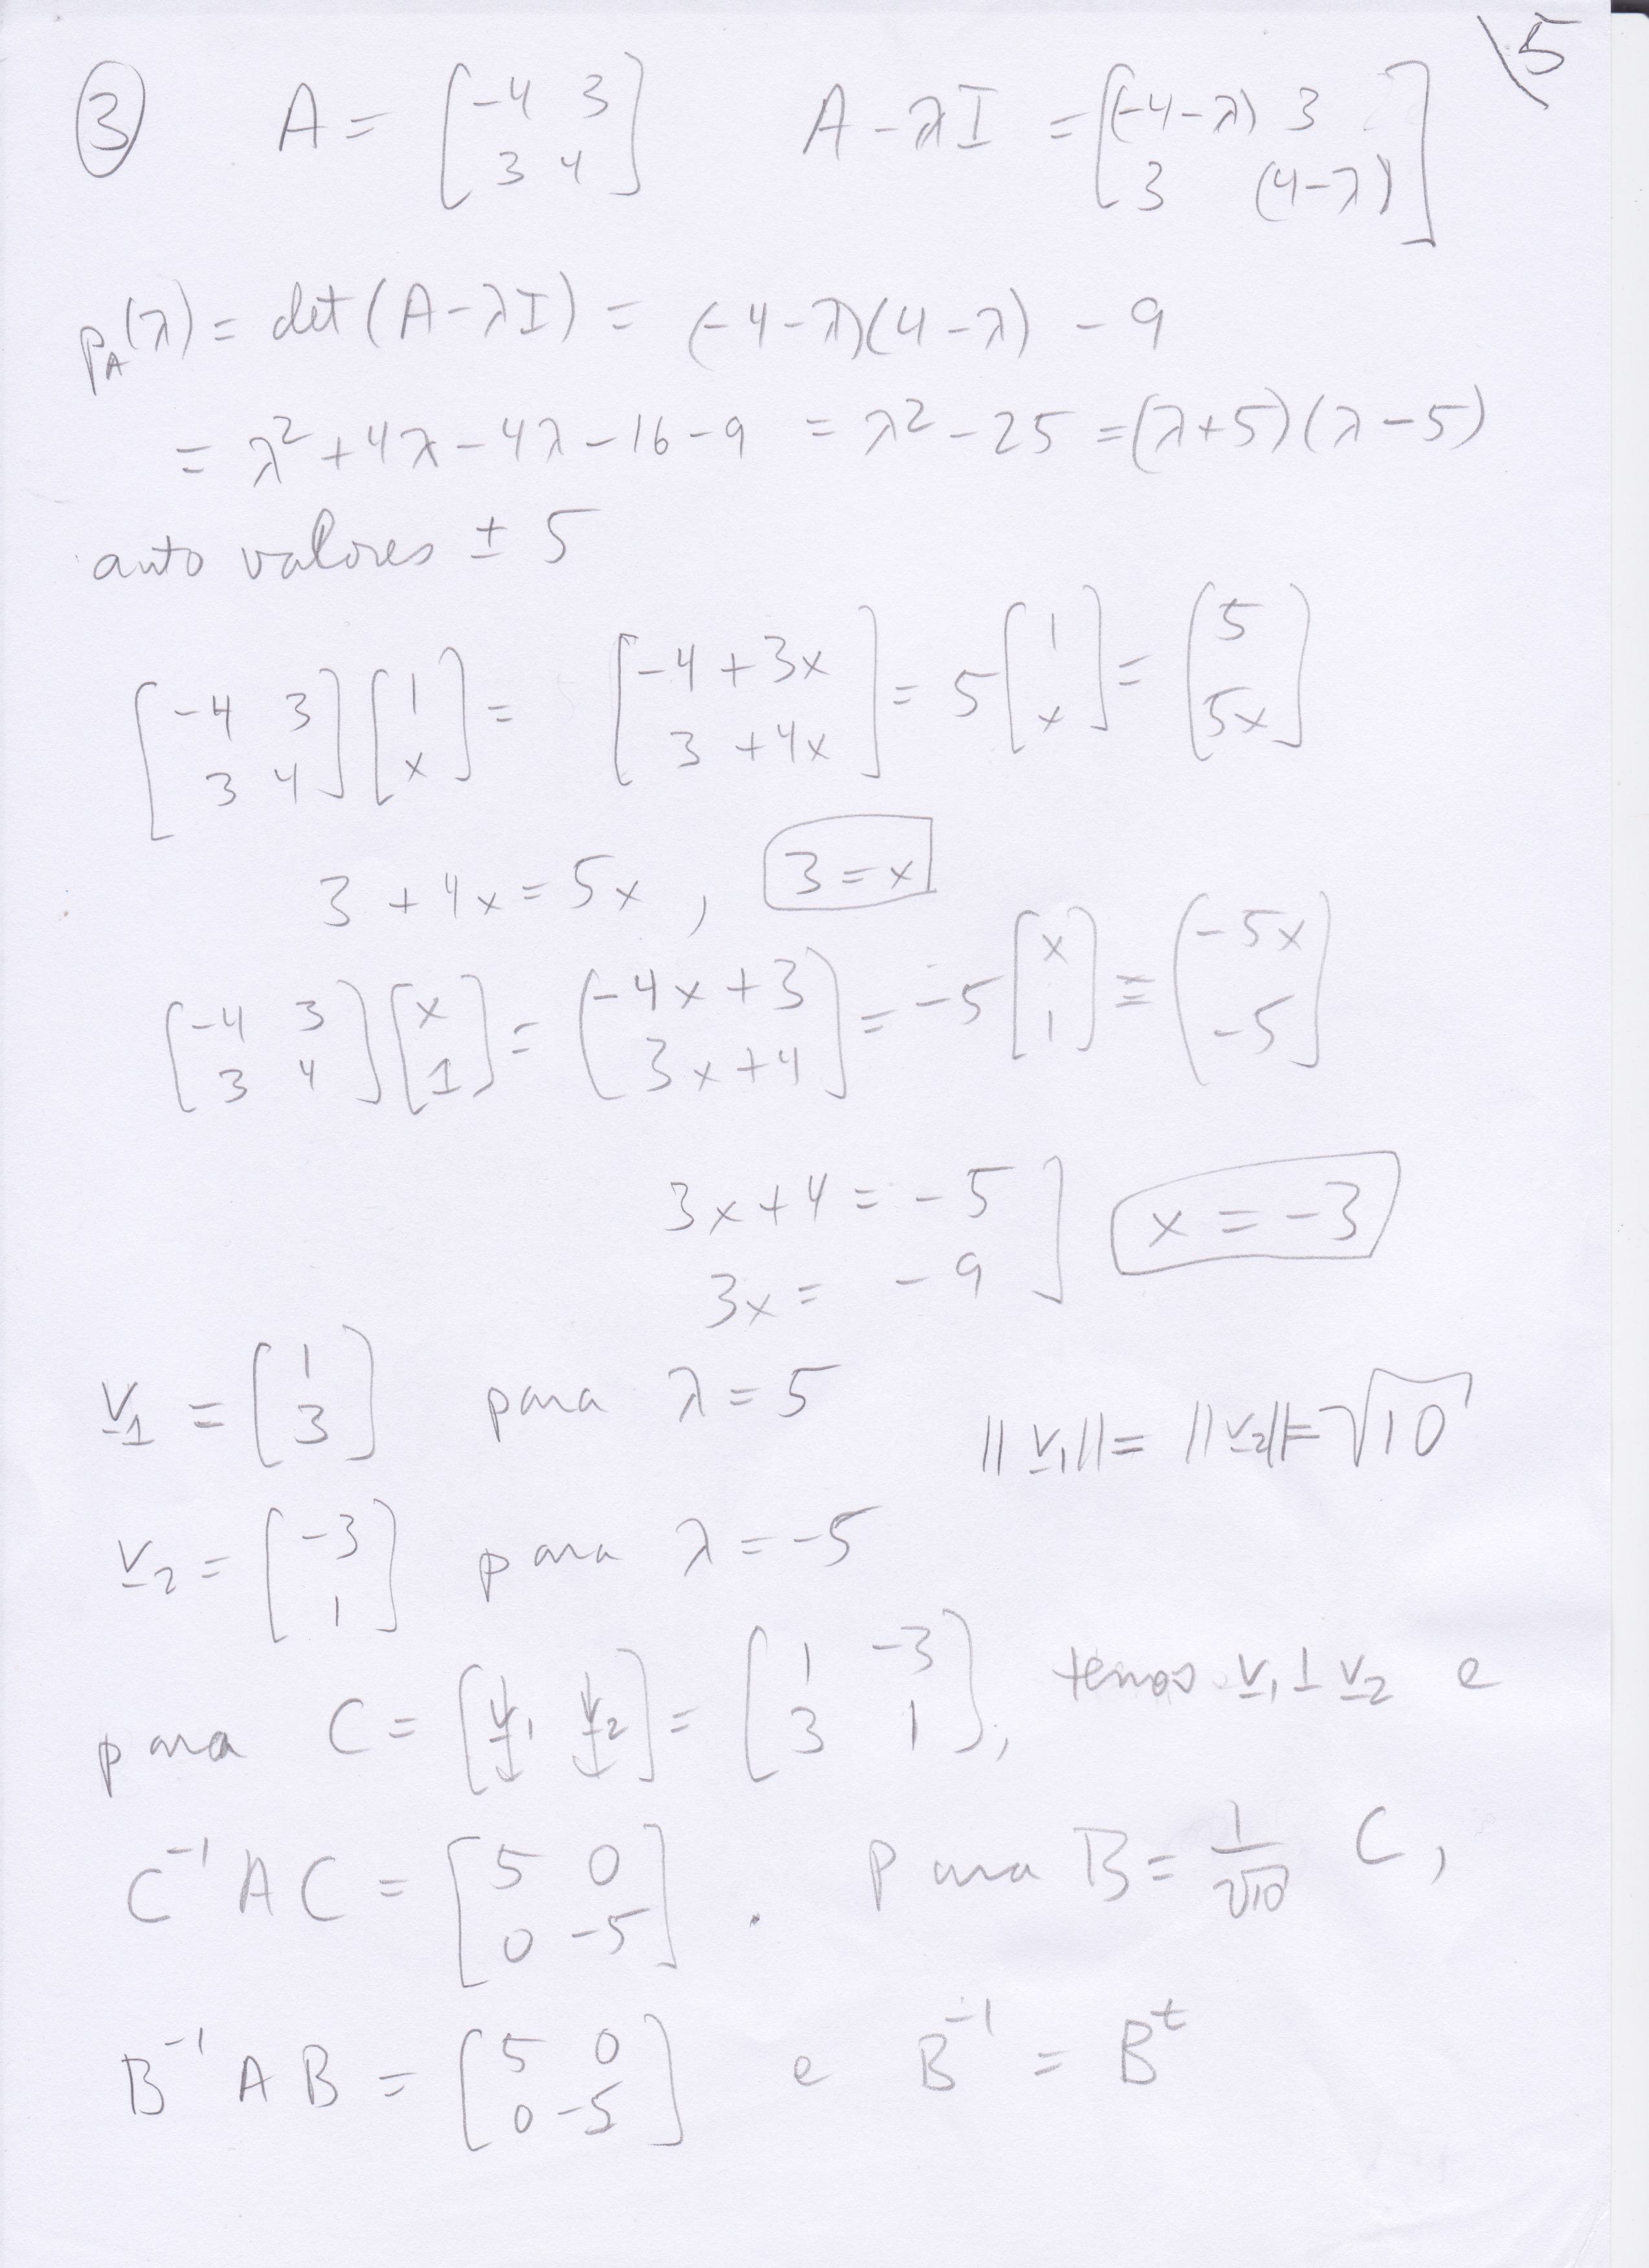 \5
③ A = [-4 3; 3 4] A - λI = [(-4-λ) 3; 3 (4-λ)]
p_A(λ) = det(A-λI) = (-4-λ)(4-λ) - 9
= λ² + 4λ - 4λ - 16 - 9 = λ² - 25 = (λ+5)(λ-5)
auto valores ± 5
[-4 3; 3 4] [1; x] = [-4+3x; 3+4x] = 5 [1; x] = [5; 5x]
3 + 4x = 5x , 3 = x
[-4 3; 3 4] [x; 1] = [-4x+3; 3x+4] = -5 [x; 1] = [-5x; -5]
3x + 4 = -5 ] x = -3
3x = -9
v₁ = [1; 3] para λ = 5 ||v₁|| = ||v₂|| = √10
v₂ = [-3; 1] para λ = -5
para C = [v₁ v₂] = [1 -3; 3 1], temos v₁ ⊥ v₂ e
C⁻¹ A C = [5 0; 0 -5] . para B = 1/√10 C,
B⁻¹ A B = [5 0; 0 -5] e B⁻¹ = Bᵗ